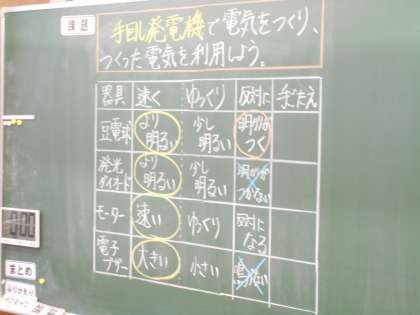 課題
手回し発電機で電気をつくり、
つくった電気を利用しよう。
器具 速く ゆっくり 反対に 手ごたえ
豆電球 より明るい 少し明るい 明かりがつく
発光ダイオード より明るい 少し明るい 明かりがつかない
モーター 速い ゆっくり 反対になる
電子ブザー 大きい 小さい 鳴らない
まとめ
ふりかえり